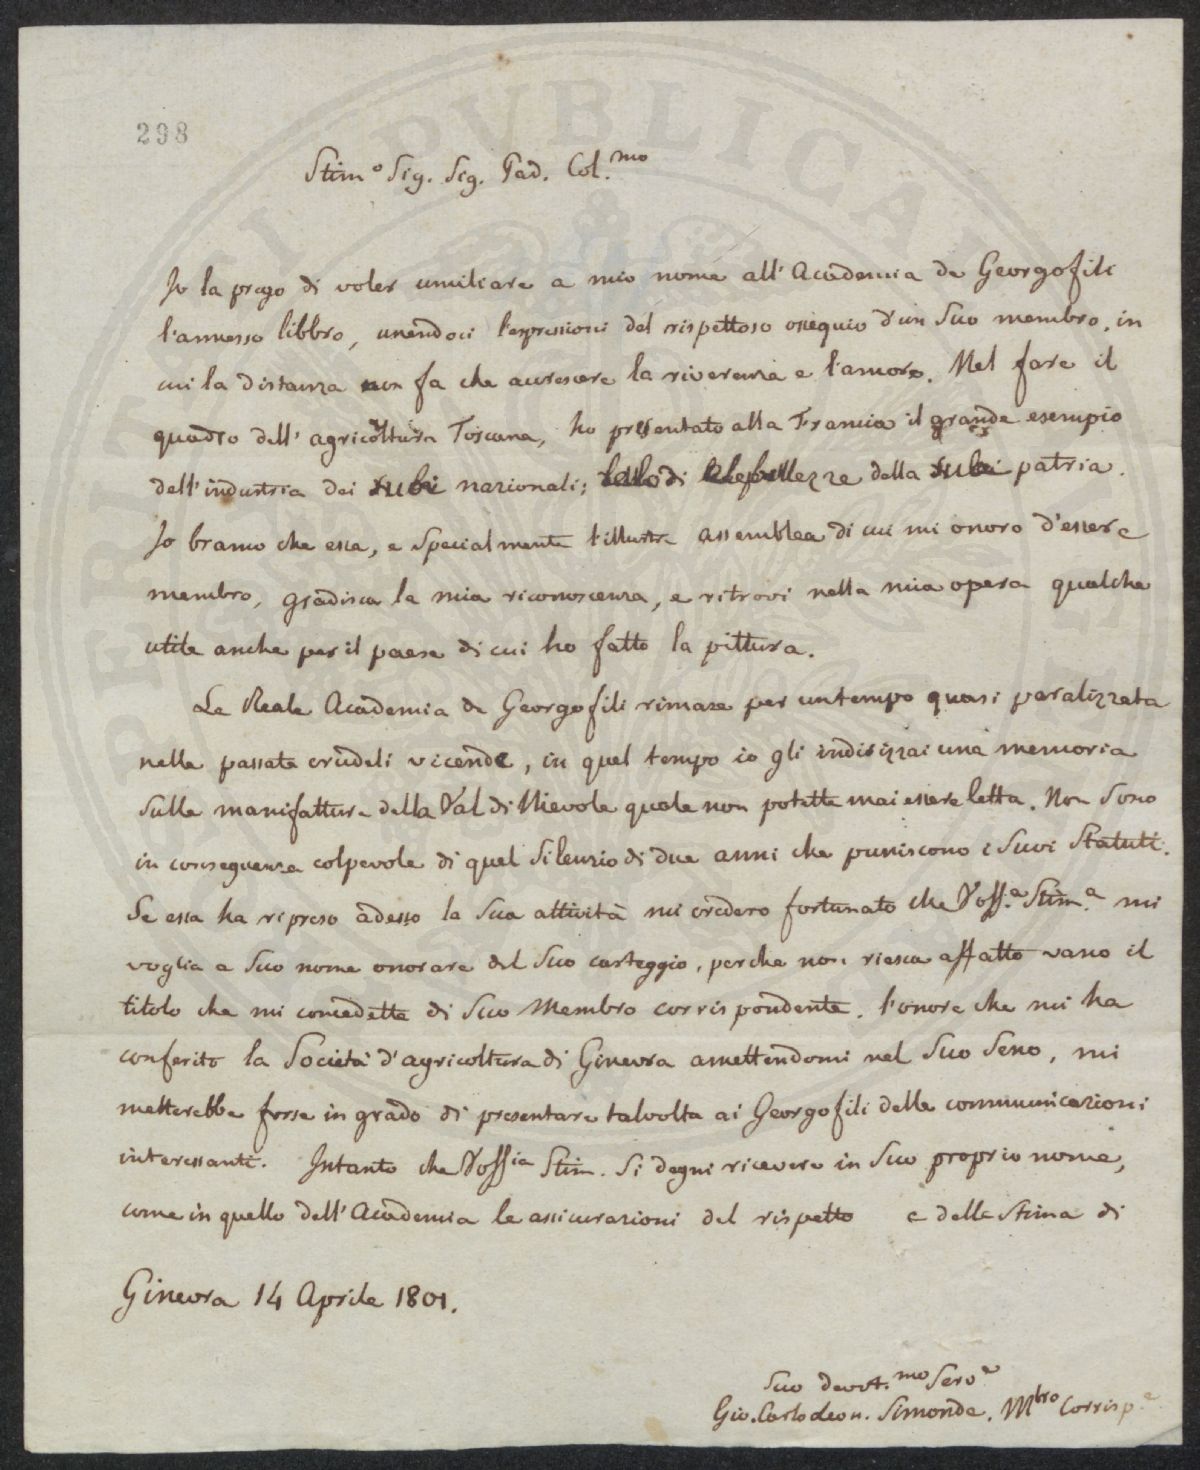 298
Stim.o Sig. Sig. Pad. Col.mo
Io la prego di voler umiliare a mio nome all'Academia de Georgofili
l'annesso libbro, unendoci l'espressioni del rispettoso ossequio d'un suo membro, in
cui la distanza non fa che accrescere la riverenza e l'amore. Nel fare il
quadro dell'agricoltura Toscana, ho presentato alla Francia il grande esempio
dell'industria dei suoi nazionali; di bellezze della sua patria.
Io bramo che essa, e specialmente l'illustre assemblea di cui mi onoro d'essere
membro, gradisca la mia riconoscenza, e ritrovi nella mia opera qualche
utile anche per il paese di cui ho fatto la pittura.
La Reale Academia de Georgofili rimase per un tempo quasi paralizzata
nelle passate crudeli vicende, in quel tempo io gli indirizzai una memoria
sulle manifatture della Val di Nievole quale non potette mai essere letta. Non sono
in conseguenza colpevole di quel silenzio di due anni che puniscono i suoi statuti.
Se essa ha ripreso adesso la sua attività mi credero fortunato che Voss.a Stim.a mi
voglia a suo nome onorare del suo carteggio, perche non riesca affatto vano il
titolo che mi concedette di suo Membro corrispondente. l'onore che mi ha
conferito la Società d'agricoltura di Ginevra amettendomi nel suo seno, mi
metterebbe forse in grado di presentare talvolta ai Georgofili delle communicazioni
interessanti. Intanto che Vossia Stim. si degni ricevere in suo proprio nome,
come in quello dell'Academia le assicurazioni del rispetto e della stima di
Ginevra 14 Aprile 1801.
Suo devot.mo Serv.e
Gio. Carlo Leon. Simonde. Mbro Corrisp.e